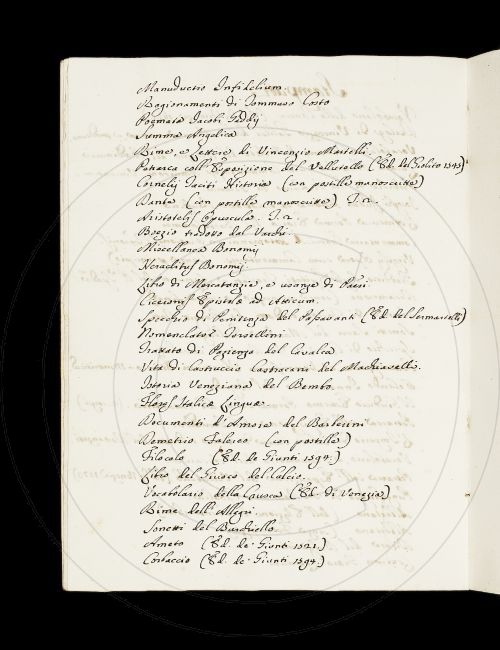 Manuductio Infidelium
Ragionamenti di Tommaso Costo
Poemata Jacobi
Summa Angelica
Rime, e Lettere di Vincenzio Martelli.
Petrarca coll' Esposizione del Vellutello (Ed. del Giolito 1545)
Cornelij Taciti Historia (con postille manoscritte)
Dante (con postille manoscritte) T. 2.
Aristotelis Opuscula. T. 2.
Boezio tradotto dal Varchi.
Miscellanea Bonomij
Heraclitus Bonomij
Libro di Mercatanzie, e usanze di Paesi
Ciceronis Epistolæ ad Atticum.
Specchio di Penitenza del Passavanti (Ed. del Sermartelli)
Nomenclator Torsellini
Trattato di Pazienza del Cavalca
Vita di Castruccio Castracani del Machiavelli.
Istoria Veneziana del Bembo
Flores Italicæ Linguæ
Documenti d'Amore del Barberini
Demetrio Falereo (con postille)
Filocolo (Ed. de' Giunti 1594.)
Libro del Giuoco del Calcio.
Vocabolario della Crusca (Ed. di Venezia)
Rime dell' Allegri.
Sonetti del Burchiello
Ameto (Ed. de' Giunti 1521.)
Corbaccio (Ed. de' Giunti 1594.)